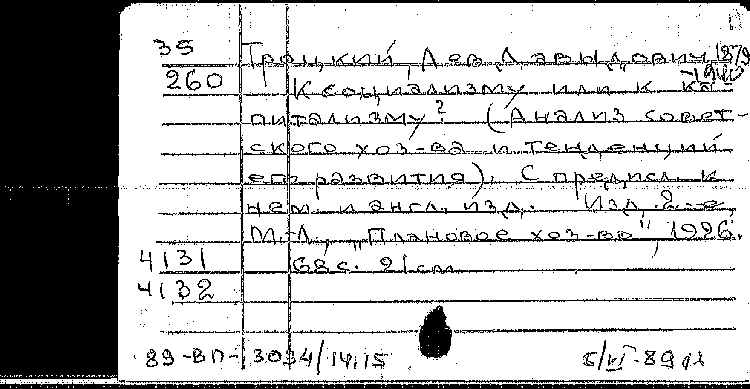 35 Троцкий, Лев Давыдович, 1879
260 -1940
К социализму или к ка-
питализму? (Анализ совет-
ского хоз-ва и тенденций
его развития). С предисл. к
нем. и англ. изд. Изд. 2-е.
М.-Л., "Плановое хоз-во", 1926.
4131 68 с. 21 см
4132
89-ВП-3034/14,15 5/VI-89